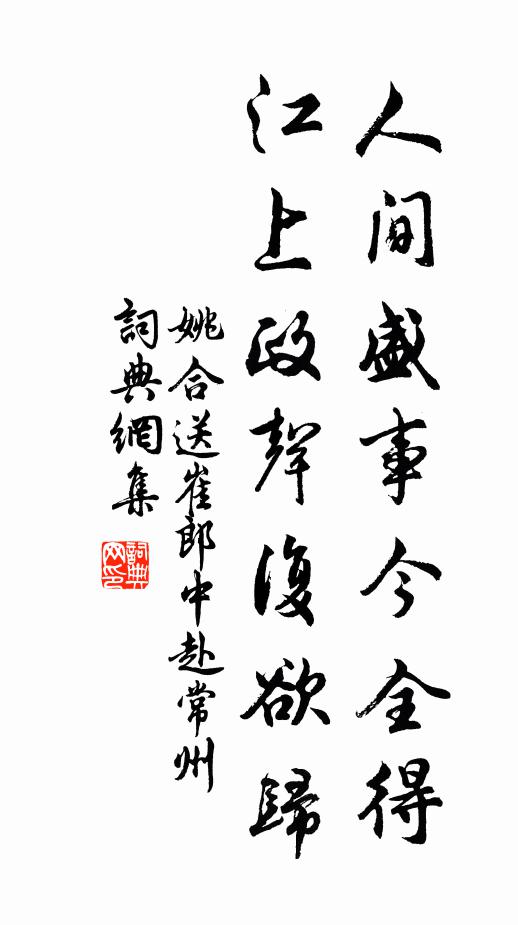 人間盛事今全得
江上政聲復欲歸
姚合送崔郎中赴常州
詞典網集
詞典
网印